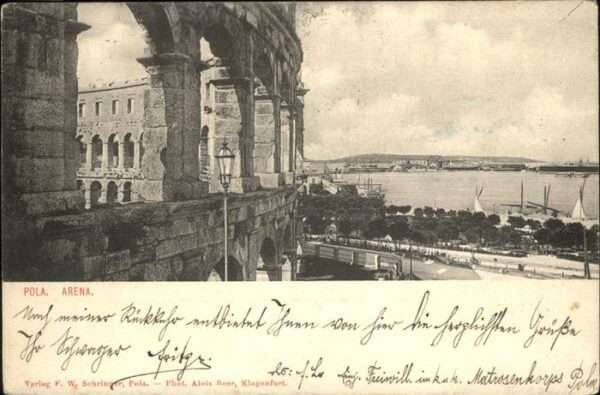 POLA. ARENA.
Nach meiner Rückkehr entbietet Ihnen von hier die herzlichsten Grüße
Ihr Schwager Fritz.
Freiwill. im k.u.k. Matrosenkorps Pola
Verlag F. W. Schrinner, Pola. — Phot. Alois Beer, Klagenfurt.